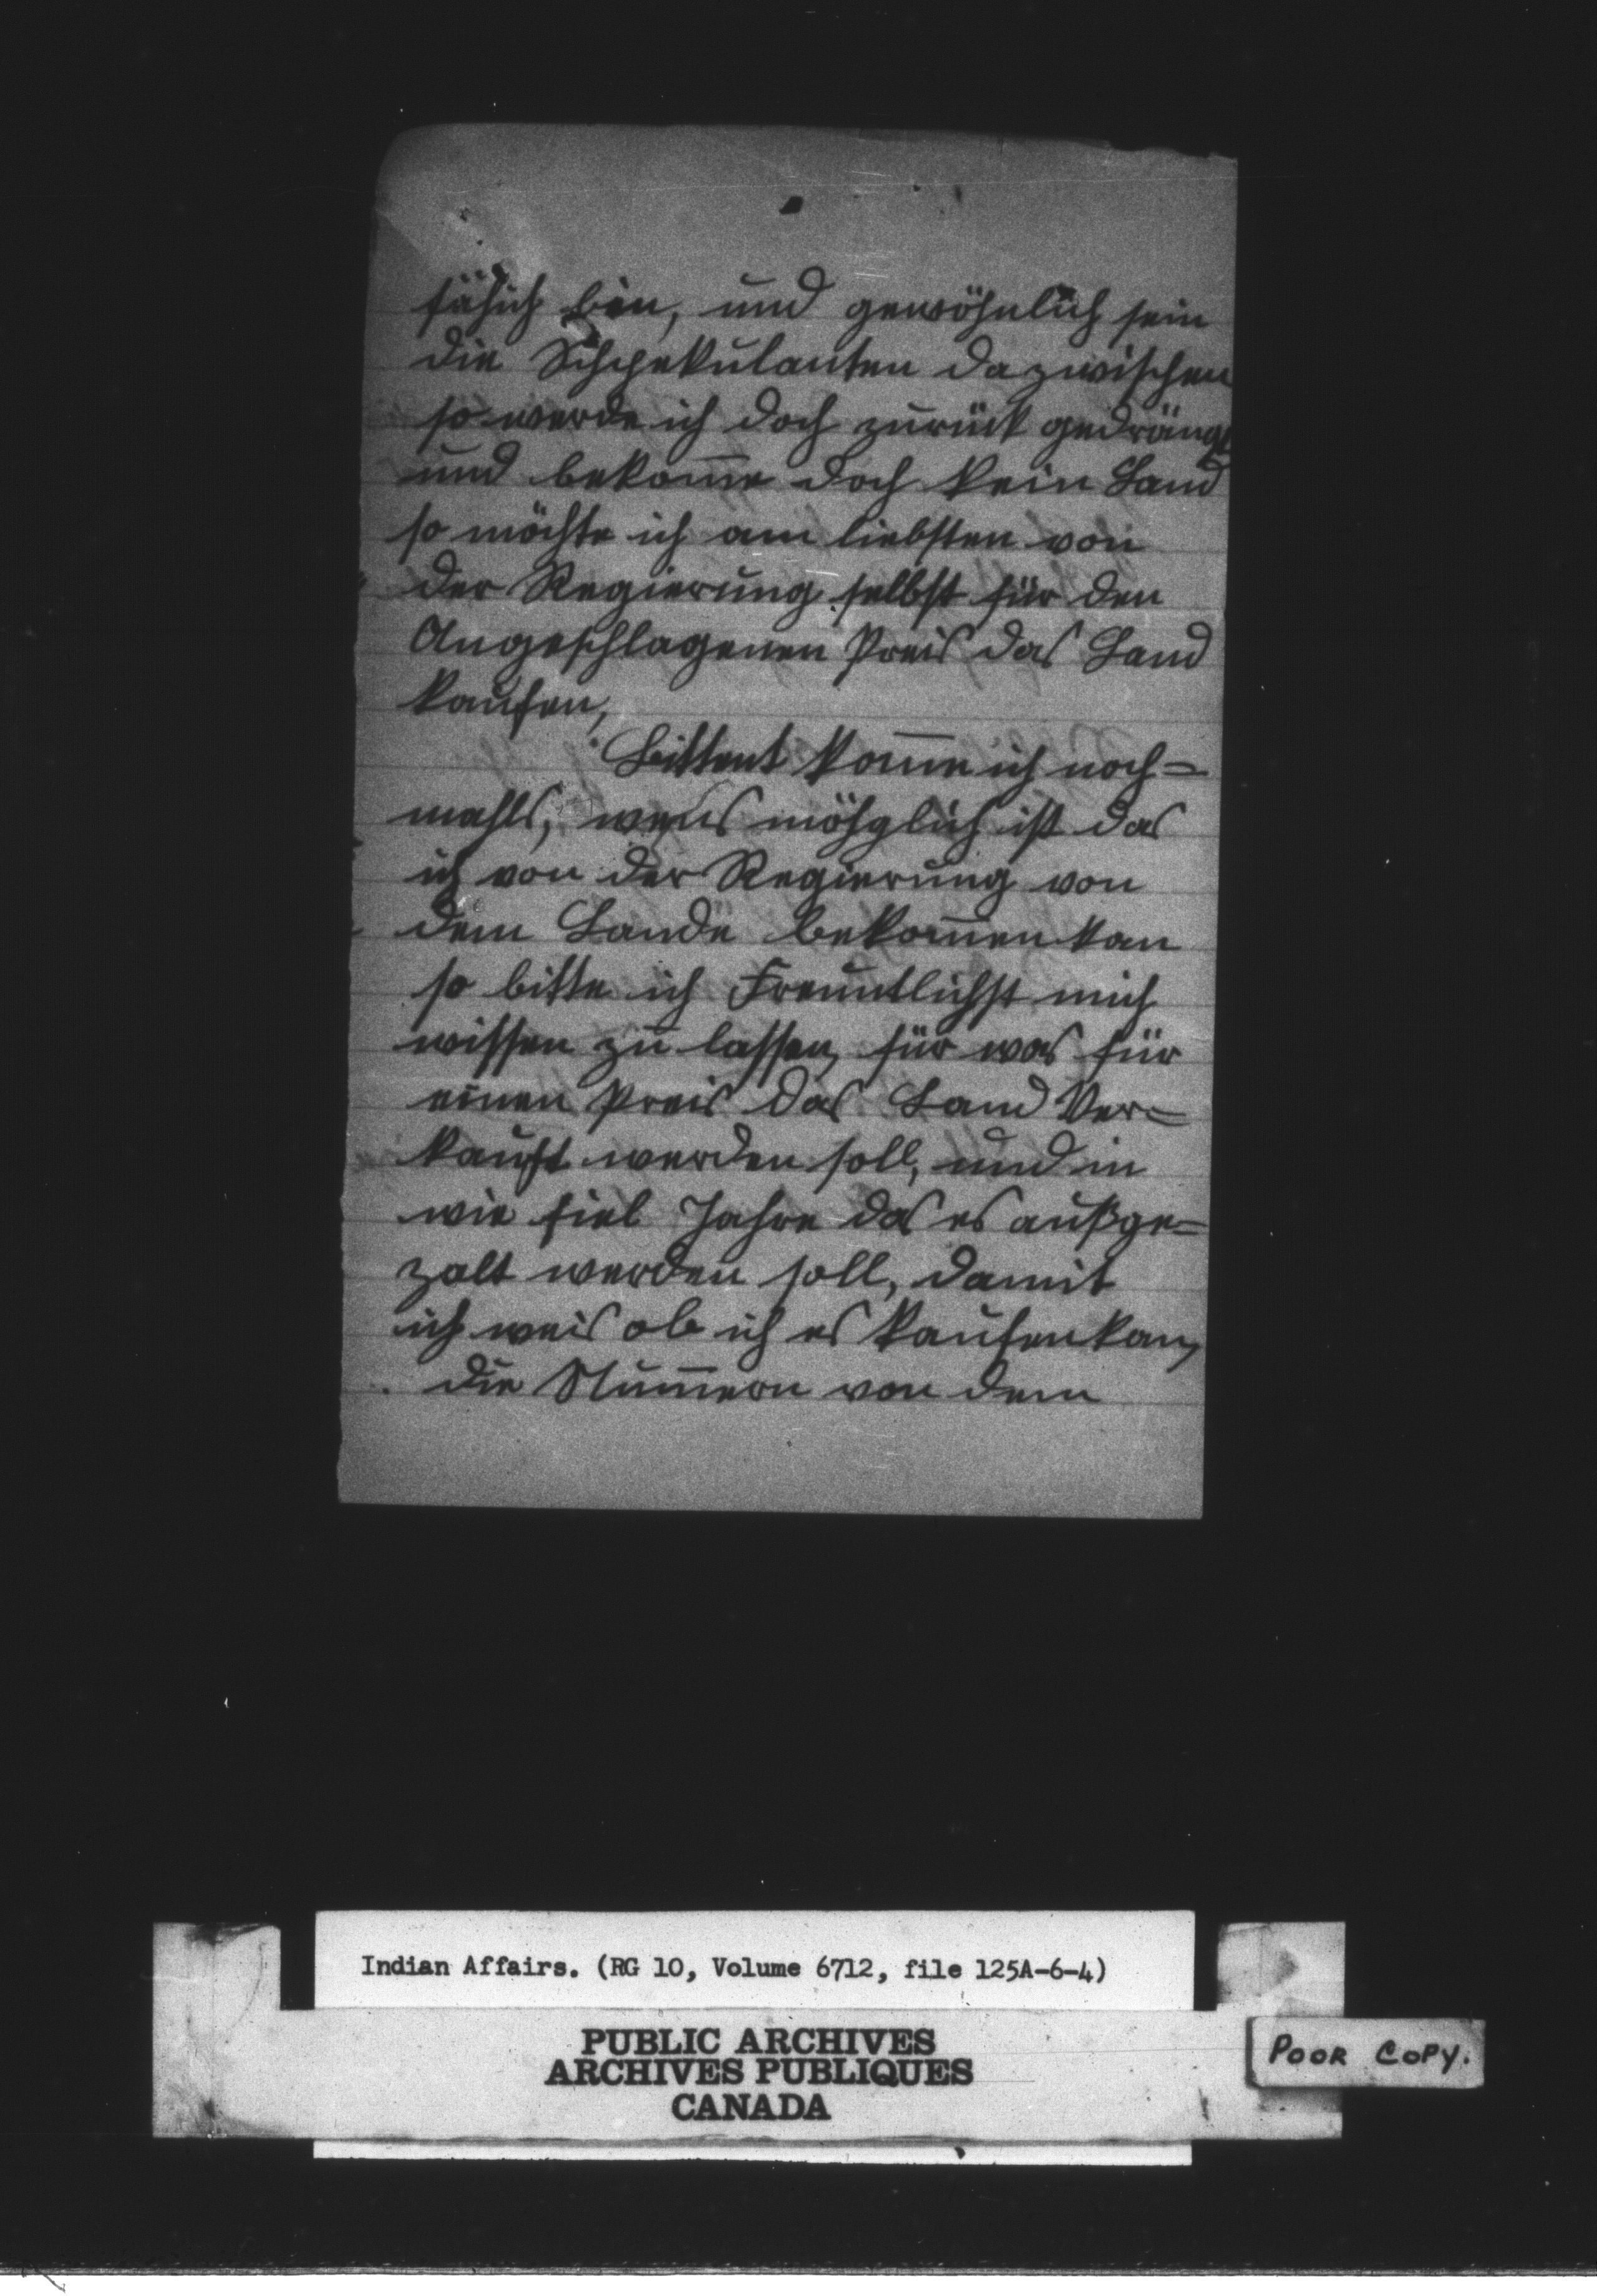 fähich bin, und gewöhnlich sein
die Schpekulanten dazwischen
so werde ich doch zurück gedrängt
und bekom̅e doch kein Land
so möchte ich am liebsten von
der Regierung selbst für den
Angeschlagenen Preis das Land
kaufen,
Bittent kom̅e ich noch=
mahls, wens möhglich ist das
ich von der Regierung von
dem Lande bekom̅en kan
so bitte ich Freuntlichst mich
wissen zu lassen, für was für
einen Preis das Land Ver=
kauft werden soll, und in
wie fiel Jahre das es außge=
zalt werden soll, damit
ich weis ob ich es kaufen kan,
die Num̅ern von dem
Indian Affairs. (RG 10, Volume 6712, file 125A-6-4)
PUBLIC ARCHIVES
ARCHIVES PUBLIQUES
CANADA
POOR COPY.